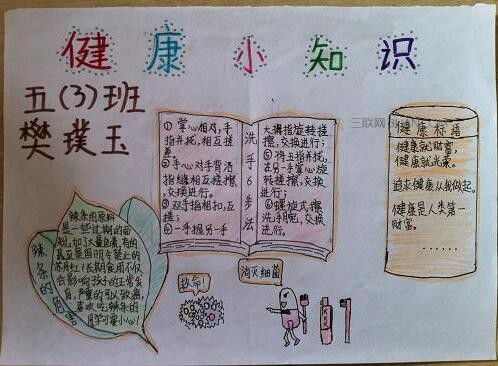 健康小知识
五(3)班
樊璞玉
三联网
洗手6步法
① 掌心相对,手
指并拢,相互搓
擦;
②手心对手背沿
指缝相互搓擦,
交换进行。
③双手指相扣,互
搓;
④一手握另一手
大拇指旋转搓
擦,交换进行;
⑤将五指并拢,
在另一手掌心旋
转搓擦,交换
进行;
⑥螺旋式擦
洗手腕,交换
进行。
健康标语
健康就是财富,
健康就是光荣。
追求健康从我做起。
健康是人类第一
财富。
……
辣条的危害
辣条的原料
是一些过期的面
粉,加了大量色素,有的
甚至是国明令禁止的
苏丹红!长期食用不仅
会影响孩子的正常发
育,严重的可以致癌,
喜欢吃辣条的
同学可要小心!
救命!
消灭细菌